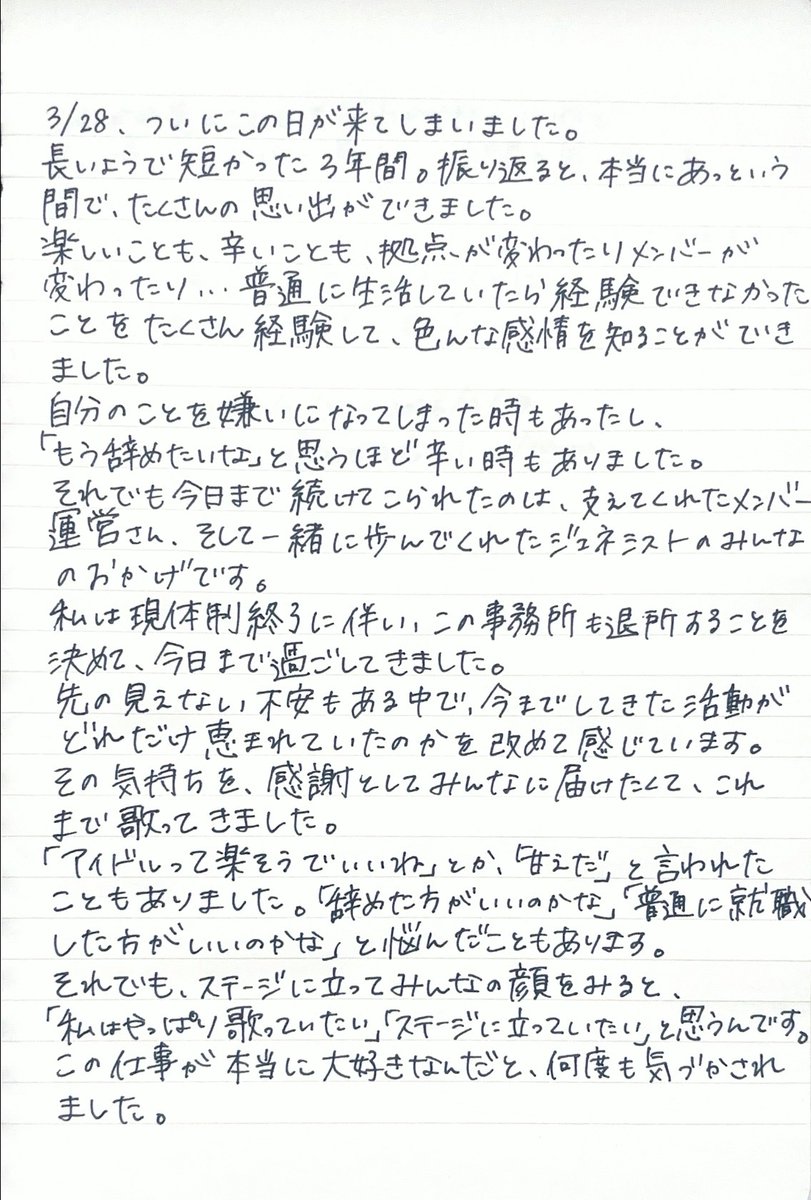 3/28、ついにこの日が来てしまいました。
長いようで短かった3年間。振り返ると、本当にあっという
間で、たくさんの思い出ができました。
楽しいことも、辛いことも、拠点が変わったりメンバーが
変わったり...普通に生活していたら経験できなかった
ことをたくさん経験して、色んな感情を知ることができ
ました。
自分のことを嫌いになってしまった時もあったし、
「もう辞めたいな」と思うほど辛い時もありました。
それでも今日まで続けてこられたのは、支えてくれたメンバー
運営さん、そして一緒に歩んでくれたジェネミストのみんな
のおかげです。
私は現体制終了に伴い、この事務所も退所することを
決めて、今日まで過ごしてきました。
先の見えない不安もある中で、今までしてきた活動が
どれだけ恵まれていたのかを改めて感じています。
その気持ちを、感謝としてみんなに届けたくて、これ
まで歌ってきました。
「アイドルって楽そうでいいね」とか、「甘えだ」と言われた
こともありました。「辞めた方がいいのかな」「普通に就職
した方がいいのかな」と悩んだこともあります。
それでも、ステージに立ってみんなの顔をみると、
「私はやっぱり歌っていたい」「ステージに立っていたい」と思うんです。
この仕事が本当に大好きなんだと、何度も気づかされ
ました。